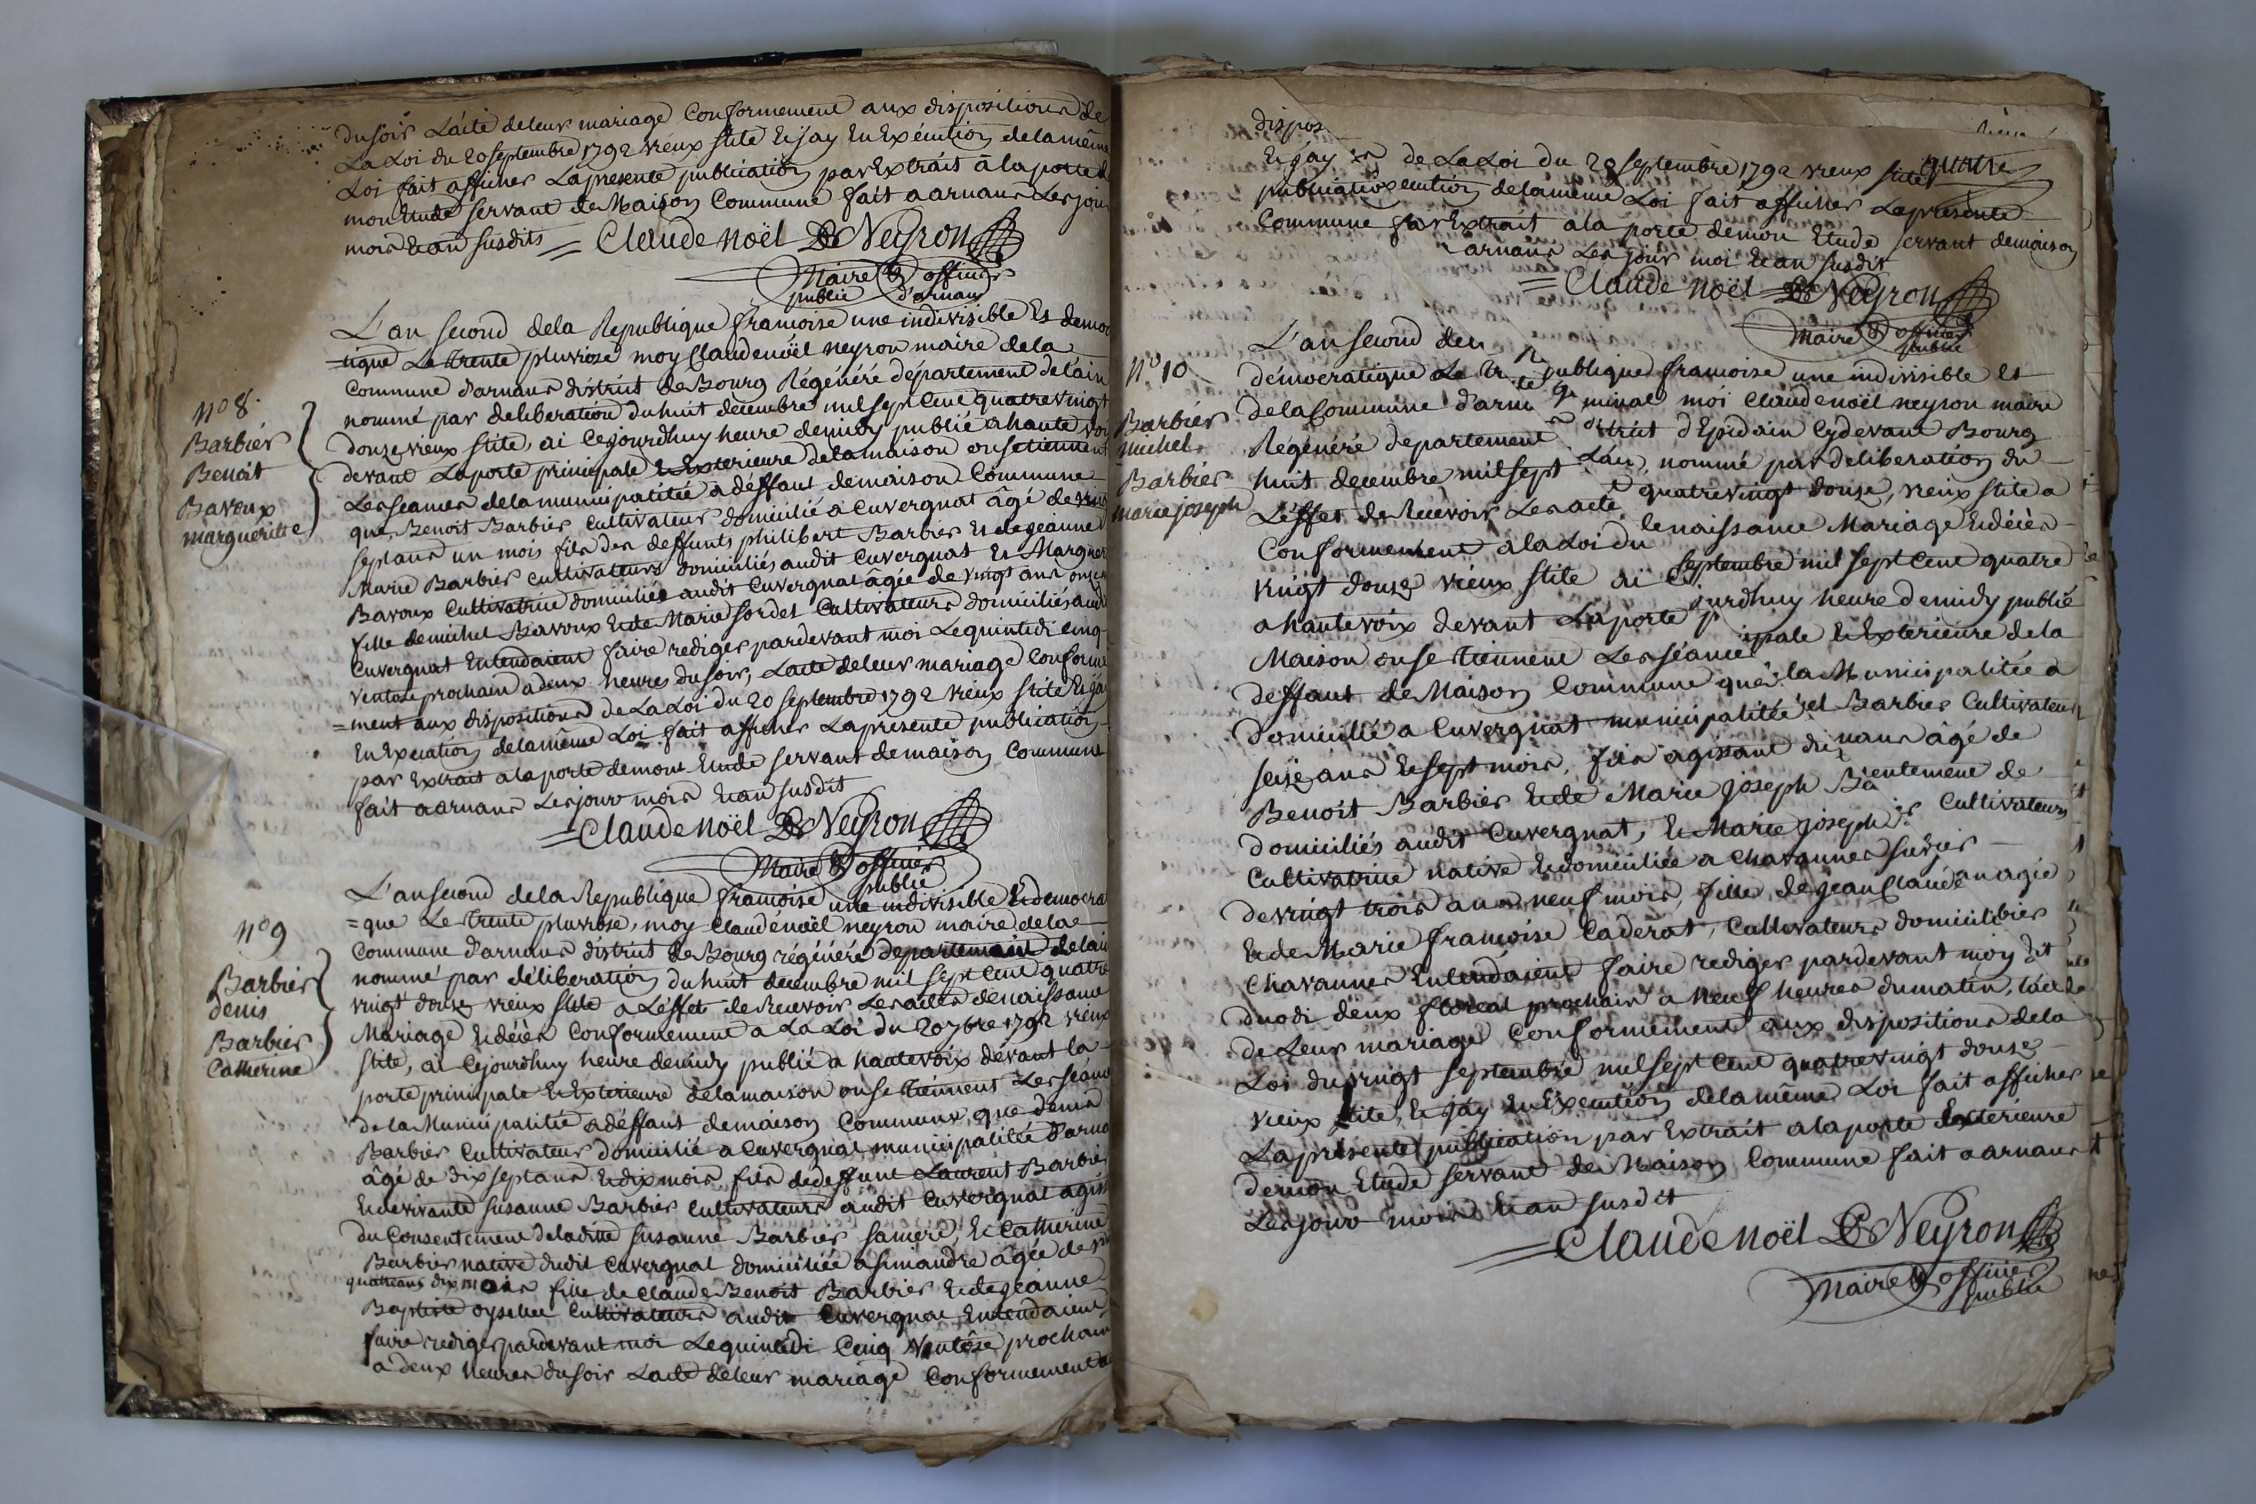 du soir L'acte de leur mariage Conformement aux dispositions de
La Loi du 20 septembre 1792 vieux stile Et jay En Exécution de la même
Loi fait afficher La presente publication par Extrait à la porte
mon Etude servant de Maison Commune fait a arnans Les jour
mois et an susdits = Claude Noël Neyron
Maire & officier
public d'arnans
L'an second de la Republique françoise une indivisible Et democ
=tique Le trente pluviose moy Claude noël neyron maire de la
Commune d'arnans district de Bourg Régénéré departement de l'ain
nommé par deliberation du huit decembre mil sept cent quatre vingt
douze vieux stile, ai Cejourdhuy heure de midy publié a haute voi
devant La porte principale Et Exterieure de la maison ou se tiennent
Les seances de la municipalitée a déffaut de maison Commune
N° 8.
Barbier
Benoit
Bavoux
margueritte
que Benoit Barbier Cultivateur domicilié a Cuvergnat âgé de
sept ans un mois fils des deffunts philibert Barbier Et de jeanne
Marie Barbier Cultivateurs domiciliés audit Cuvergnat Et Marguer
Bavoux Cultivatrice domiciliée audit Cuvergnat âgée de vingt ans
fille de michel Bavoux Et de Marie sordet Cultivateurs domiciliés audit
Cuvergnat Entendaient faire rediger pardevant moi Le quintidi cinq
ventose prochain a deux heures du soir, Lacte de leur mariage Conforme
=ment aux dispositions de La Loi du 20 septembre 1792 vieux stile Et jay
En Execution de la même Loi fait afficher La presente publication
par Extrait a la porte de mon Etude servant de maison Commune
fait a arnans Les jour mois Et an susdit
=Claude noël Neyron
Maire & officier
public
L'an second de la Republique françoise une indivisible Et democra
=que Le trente pluviose, moy Claude noël neyron maire de la
Commune d'arnans district de Bourg régénéré departement de lain
nommé par déliberation du huit decembre mil sept cent quatre
vingt douze vieux stile a L'effet de Recevoir Les actes de naissance
Mariage Et décès Conformement a La Loi du 20 7bre 1792 vieux
stile, ai Cejourdhuy heure de midy publié a haute voix devant la
porte principale Et Exterieure de la maison ou se tiennent Les séances
N° 9
Barbier
denis
Barbier
Catherine
de la Municipalitée a déffaut de maison Commune, que denis
Barbier Cultivateur domicilié a Cuvergnat municipalitée d'arna
âgé de dix sept ans Et dix mois fils de deffunt Laurent Barbier
Et de vivante Susanne Barbier Cultivateurs audit Cuvergnat agiss
du Consentement de ladite Susanne Barbier sa mere, Et Catherine
Barbier native dudit Cuvergnat domiciliée a simandre âgée de
quatre ans dix mois fille de Claude Benoit Barbier Et de jeanne
Baptiste Cultivateurs audit Cuvergnat Entendaient
faire rediger pardevant moi Le quintidi Cinq Ventôse prochain
a deux heures du soir Lacte de leur mariage Conformement
dispos
Et jay de La Loi du 20 septembre 1792 vieux stile quatre
publication de la même Loi fait afficher La presente
Commune par Extrait a la porte de mon Etude servant de maison
arnans Les jour moi Et an susdit
=Claude Noël Neyron
Maire & officier
public
L'an second de publique françoise une indivisible Et
démocratique Le minal moi Claude noël neyron maire
de la Commune d'arn district d'Epidain Cydevant Bourg
Régénéré departement Lain, nommé par deliberation du
huit decembre mil sept quatre vingt douze, vieux stile a
L'éffet de Recevoir Les acte de naissance Mariage Et décès
Conformement a la Loi du septembre mil sept Cent quatre
N° 10
Barbier
michel
Barbier
marie joseph
vingt douze vieux stile ai jourdhuy heure de midy publié
a haute voix devant La porte ipale Et Exterieure de la
Maison ou se tiennent Les séance la Municipalitée a
deffaut de Maison Commune que el Barbier Cultivateur
domicilié a Cuvergnat municipalitée nans âgé de
seize ans Et sept mois, fils agissant du entement de
Benoit Barbier Et de Marie joseph Ba Cultivateurs
domiciliés audit Cuvergnat, Et Marie joseph
Cultivatrice native Et domiciliée a Chavannes
de vingt trois ans neuf mois, fille de jean Claude
Et de Marie françoise Caderot, Cultivateurs domicili
Chavannes Entendaient faire rediger pardevant moy dit
duodi deux floreal prochain a Neuf heures du matin, lacte
de Leur mariage Conformement aux dispositions de la
Loi du vingt septembre mil sept Cent quatre vingt douze
vieux stile, Et jay En Execution de la même Loi fait afficher
La présente publication par Extrait a la porte Extérieure
de mon Etude servant de Maison Commune fait a arnans
Les jour mois Et an susdit
=Claude Noël Neyron
Maire & officier
public